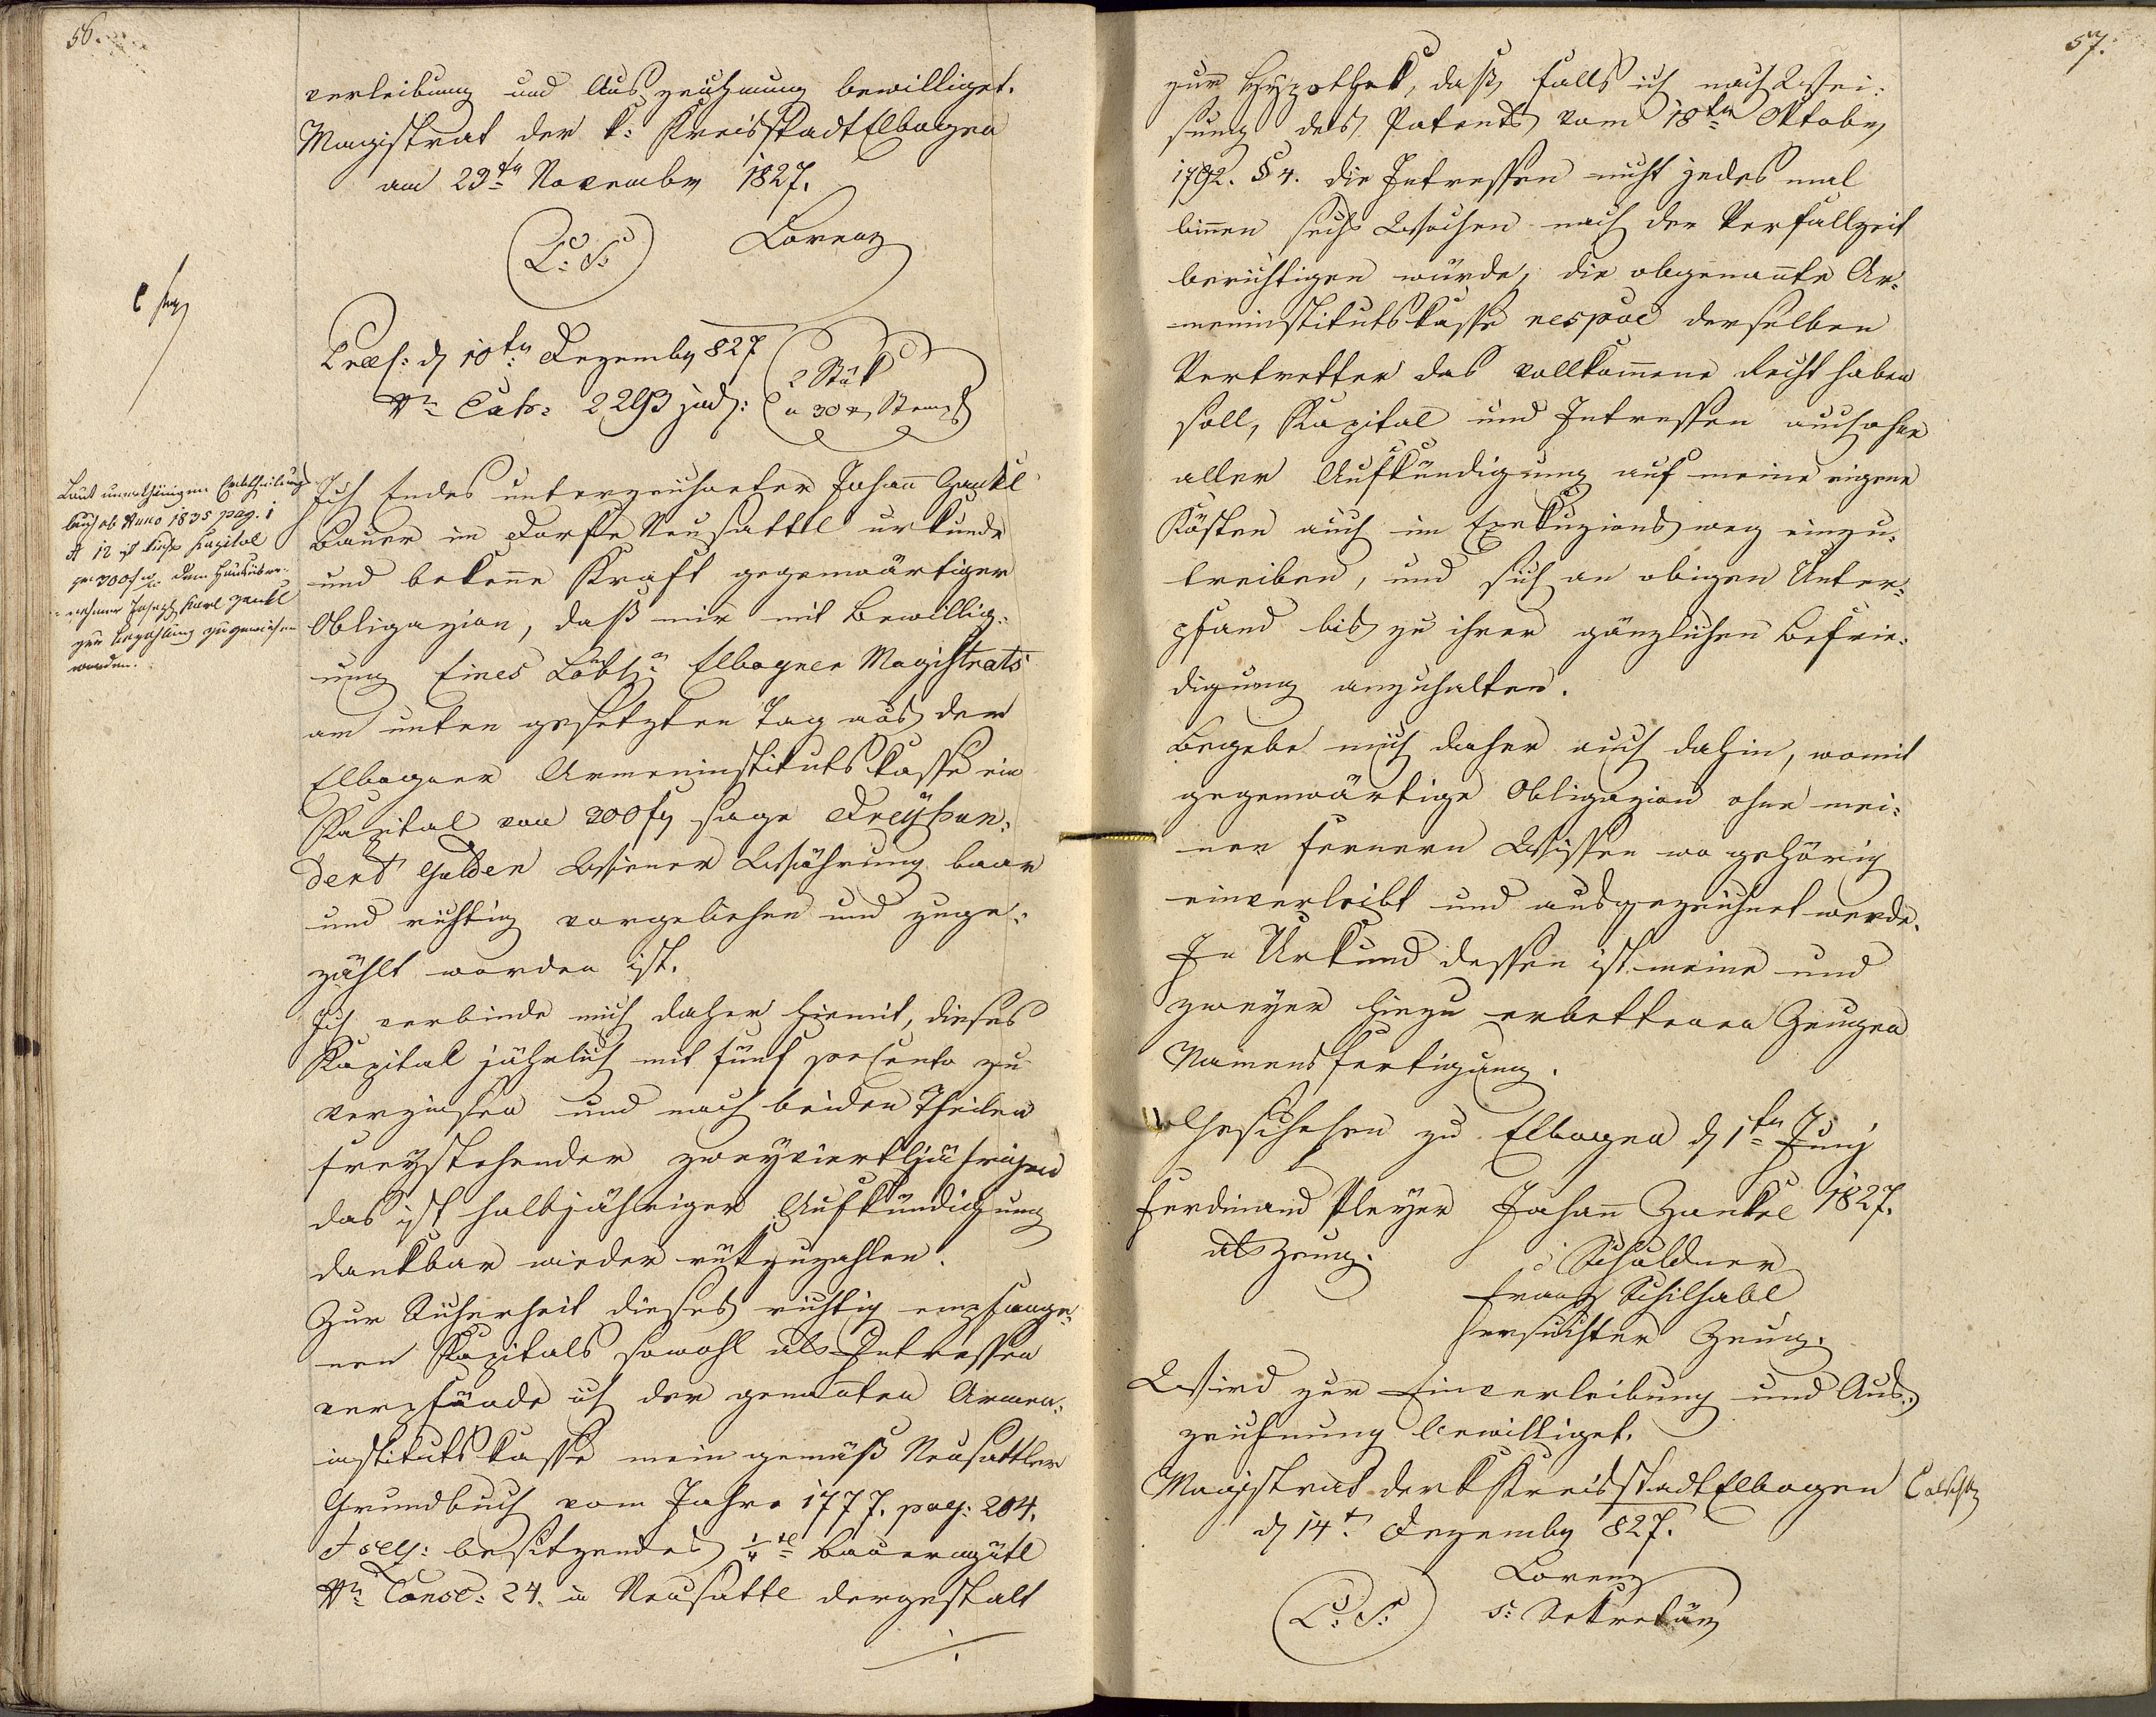 56.
verleibung und Auszeichnung bewilliget.
Magistrat der k: Kreisstadt Elbogen
am 23ten November 1827.
L: S: Lorenz
Præs: d 10ten Dezember 827
Nro Exh: 2293 jud:
2 Stük
a 30 x Stempl
Laut unterthänigen Erbtheilungs
buch ab Anno 1835 pag. 1
et 12 ist dieses Kapital
pr 300 f dem Hausüber-
nehmer Joseph Karl Zankl
zur Bezahlung zugewiesen
worden.
Ich Endes unterzeichneter Johann Zankl
Bauer im Dorfe Neusattl urkunde
und bekenne Kraft gegenwärtiger
Obligazion, daß mir mit Bewillig-
ung Eines Löbl: Elbogner Magistrats
am unten gesetzten Tag aus der
Elbogner Armeninstitutskasse ein
Kapital von 300 fl sage Dreyhun-
dert Gulden Wiener Währung baar
und richtig vorgeliehen und zuge-
zählt worden ist.
Ich verbinde mich daher hiemit, dieses
Kapital jährlich mit fünf procento zu
verzinsen und nach beiden Theilen
freystehender zweyvierteljährigen
das ist halbjähriger Aufkündigung
dankbar wieder rükzuzahlen.
Zur Sicherheit dieses richtig empfange-
nen Kapitals sowohl als Intressen
verpfände ich der genannten Armen-
institutskasse mein gemäß Neusattler
Grundbuch vom Jahre 1777. pag: 204.
et seq: besitzendes 1/4tl Bauerngütl
Nro Consc: 24. in Neusattl dergestalt
57.
zur Hypothek, daß, falls ich nach Wei-
sung des Patents vom 18ten Oktober
1792. § 4. die Intressen nicht jedes mal
binnen sechs Wochen nach der Verfallzeit
berichtigen würde, die obgenannte Ar-
meninstitutskasse respve derselben
Vertretter das vollkommene Recht haben
soll, Kapital und Intressen auch ohne
aller Aufkündigung auf meine eigene
Kösten auch im Exekuzionsweg einzu-
treiben, und sich an obigen Unter-
pfand bis zu ihrer gänzlichen Befrie-
digung anzuhalten.
Begebe mich daher auch dahin, womit
gegenwärtige Obligazion ohne mei-
nen fernern Wissen wo gehörig
einverleibt und ausgezeichnet werde.
In Urkund dessen ist meine und
zweyer hiezu erbettenen Zeugen
Namensfertigung.
Geschehen zu Elbogen d 1ten Juny
Ferdinand Pleyer Johann Zankel 1827.
als Zeug. Schuldner
Franz Schilhabl
ersuchter Zeug.
Wird zur Einverleibung und Aus-
zeichnung bewilliget.
Magistrat der k Kreisstadt Elbogen
d 14t Dezember 827.
Lorenz
L: S: s: Sekretär